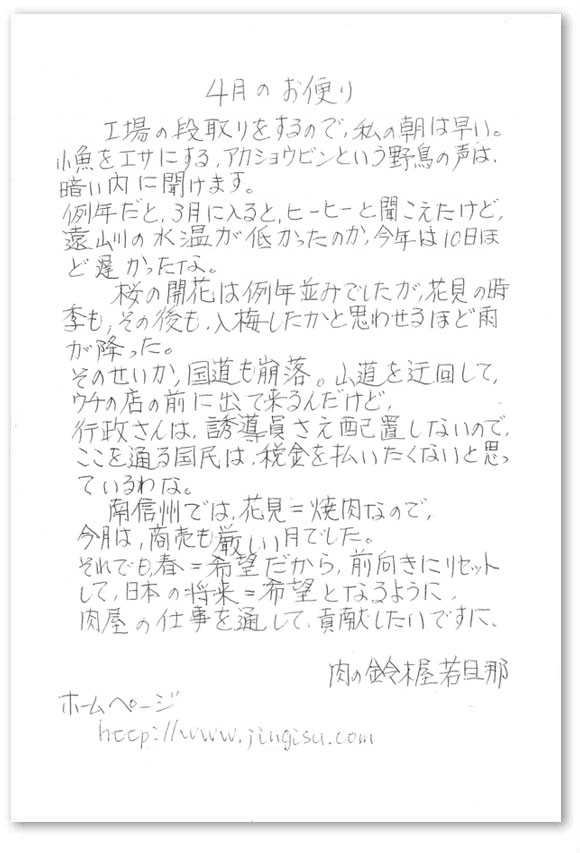 4月のお便り
工場の段取りをするので、私の朝は早い。
小魚をエサにする、アカショウビンという野鳥の声は、
暗い内に聞けます。
例年だと、3月に入ると、ヒーヒーと聞こえたけど、
遠山川の水温が低かったのか、今年は10日ほ
ど遅かったな。
桜の開花は例年並みでしたが、花見の時
季も、その後も、入梅したかと思わせるほど雨
が降った。
そのせいか、国道も崩落。山道を迂回して、
ウチの店の前に出て来るんだけど、
行政さんは、誘導員さえ配置しないので、
ここを通る国民は、税金を払いたくないと思っ
ているわな。
南信州では、花見=焼肉なので、
今月は、商売も厳しい月でした。
それでも、春=希望だから、前向きにリセット
して、日本の将来=希望となるように、
肉屋の仕事を通して、貢献したいですに、
肉の鈴木屋若旦那
ホームページ
http://www.jingisu.com